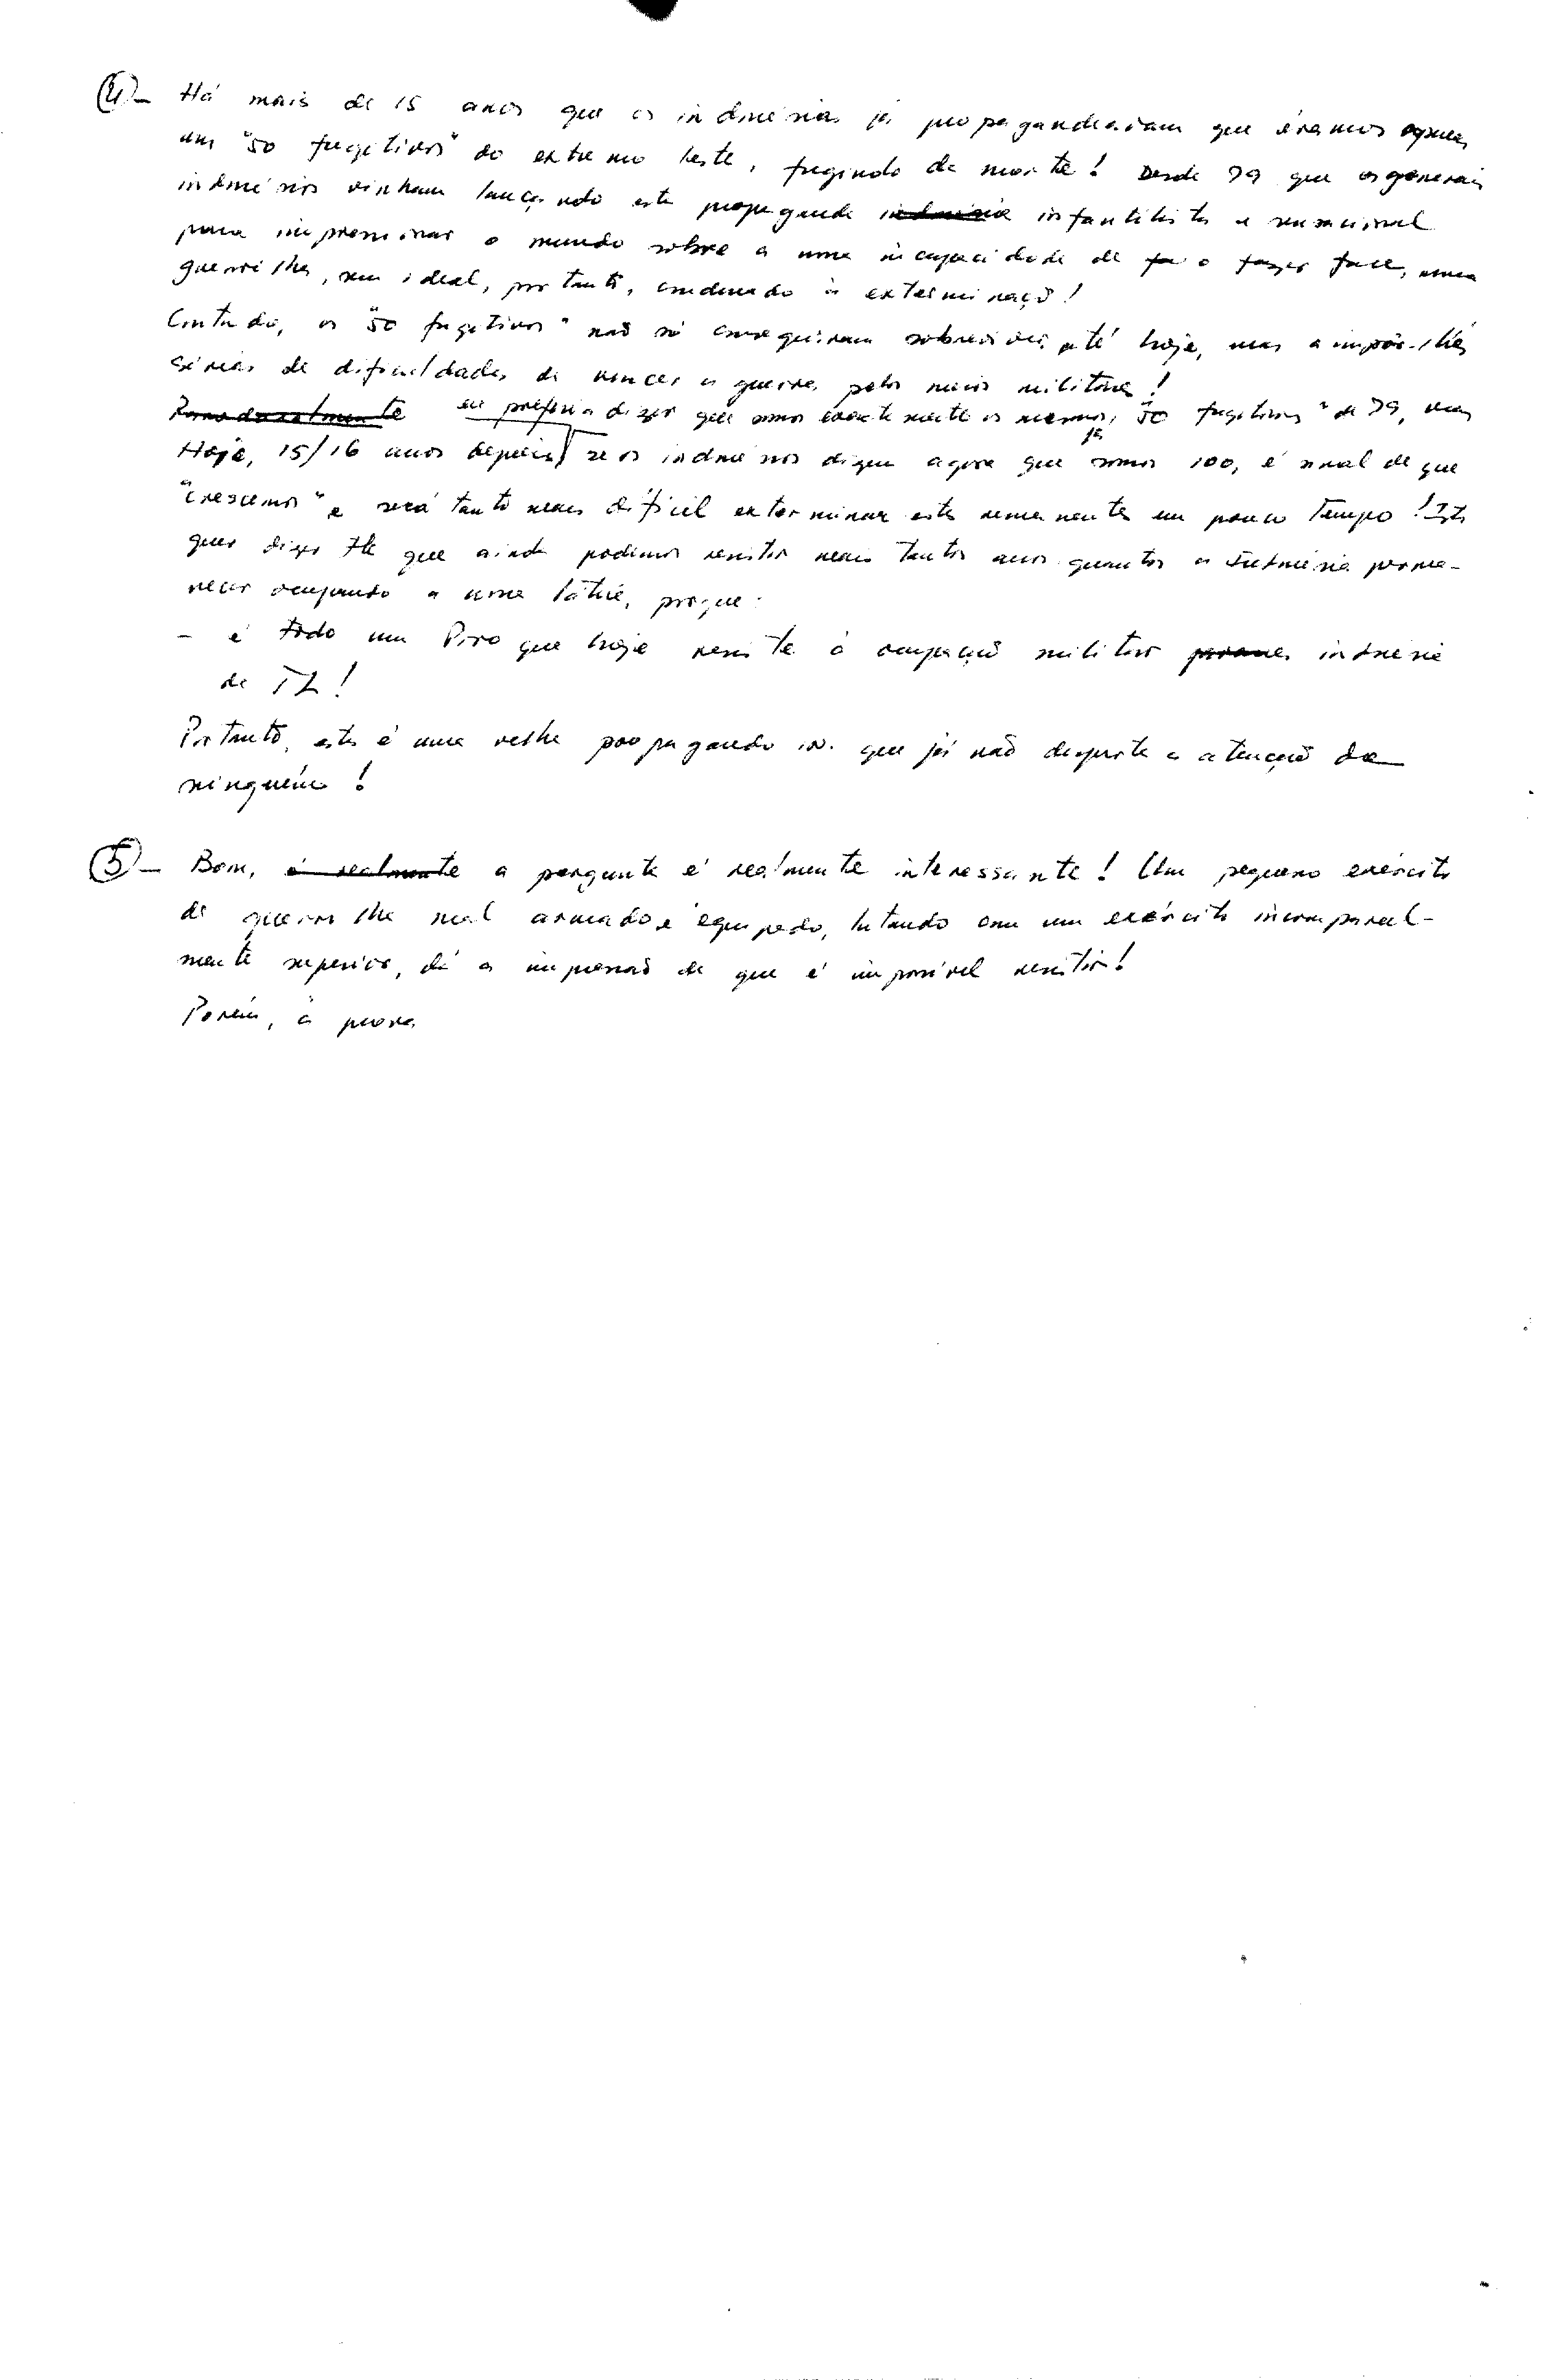 4 - Há mais de 15 anos que os indonésios já propagandeavam que éramos apenas
uns "50 fugitivos" do extremo leste, fugindo da morte! Desde 79 que os generais
indonésios vinham lançando esta propaganda indonésia infantilista e sensacional
para impressionar o mundo sobre a uma incapacidade de fa o fazer face, uma
guerrilha, sem ideal, portanto, condenado à exterminação!
Contudo, os "50 fugitivos" não só conseguiram sobreviver até hoje, mas a impôr-lhes
sérias de dificuldades de vencer a guerra pelos meios militares!
Paradoxalmente eu preferia dizer que somos exactamente os mesmos "50 fugitivos" de 79, mas
Hoje, 15/16 anos depois, se os indonésios dizem agora que já somos 100, é sinal de que
"crescemos" e será tanto mais difícil exterminar estes remanentes em pouco tempo! Isto
quer dizer que ainda podemos resistir mais tantos anos quantos a Indonésia perma-
necer ocupando a nossa Pátria, porque:
- é todo um Povo que hoje resiste à ocupação militar indonésia
de TL!
Portanto, esta é uma velha propaganda in. que já não desperta a atenção de
ninguém!
5 - Bom, é realmente a pergunta é realmente interessante! Um pequeno exército
de guerrilha mal armado e equipado, lutando com um exército incomparavel-
mente superior, dá a impressão de que é impossível resistir!
Porém, a prova